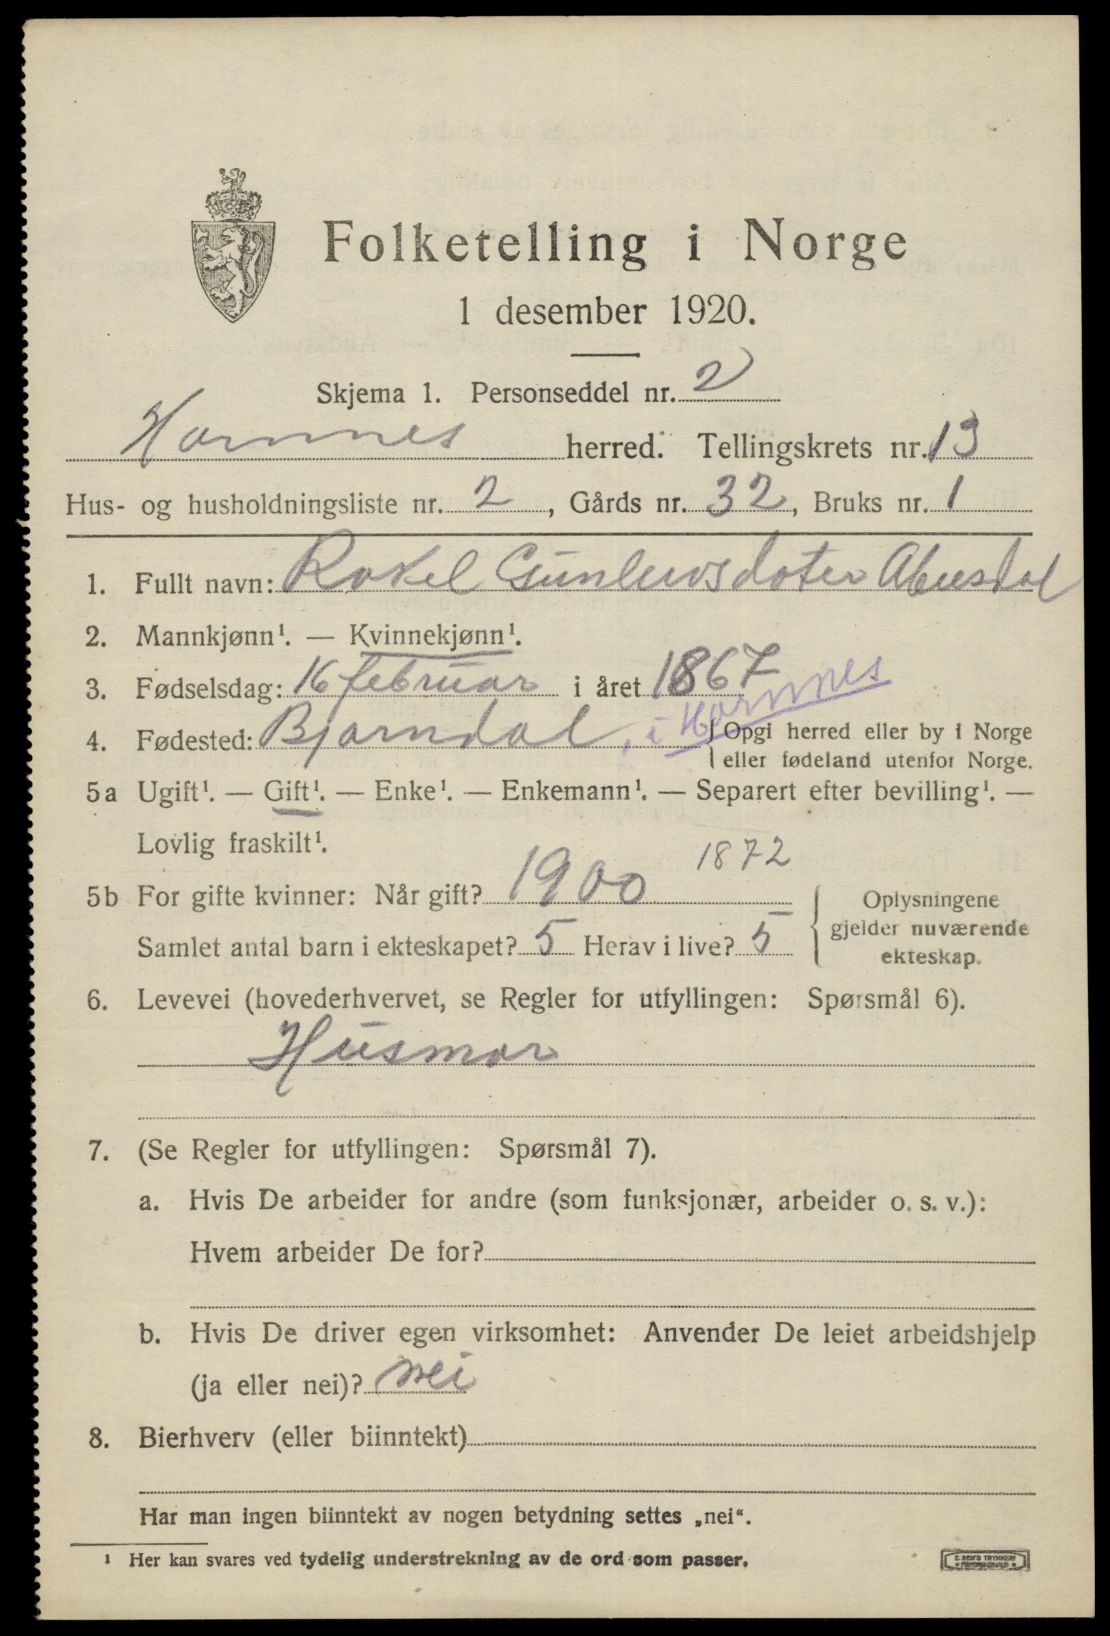 Folketelling i Norge
1 desember 1920.
Skjema 1. Personseddel nr. 2
Hornnes herred. Tellingskrets nr. 13
Hus- og husholdningsliste nr. 2, Gårds nr. 32, Bruks nr. 1
1. Fullt navn: Rakel Gunluvsdoter Abusdal
2. Mannkjønn¹. — Kvinnekjønn¹.
3. Fødselsdag: 16 februar i året 1867
4. Fødested: Bjorndal, i Hornnes { Opgi herred eller by i Norge
eller fødeland utenfor Norge.
5a Ugift¹. — Gift¹. — Enke¹. — Enkemann¹. — Separert efter bevilling¹. —
Lovlig fraskilt¹.
1872
5b For gifte kvinner: Når gift? 1900
Samlet antal barn i ekteskapet? 5 Herav i live? 5
{ Oplysningene
gjelder nuværende
ekteskap.
6. Levevei (hovederhvervet, se Regler for utfyllingen: Spørsmål 6).
Husmor
7. (Se Regler for utfyllingen: Spørsmål 7).
a. Hvis De arbeider for andre (som funksjonær, arbeider o. s. v.):
Hvem arbeider De for?
b. Hvis De driver egen virksomhet: Anvender De leiet arbeidshjelp
(ja eller nei)? nei
8. Bierhverv (eller biinntekt)
Har man ingen biinntekt av nogen betydning settes „nei“.
¹ Her kan svares ved tydelig understrekning av de ord som passer.